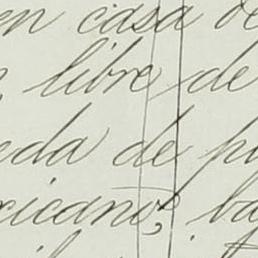 en casa de
libre de
eda de p
icano, ba